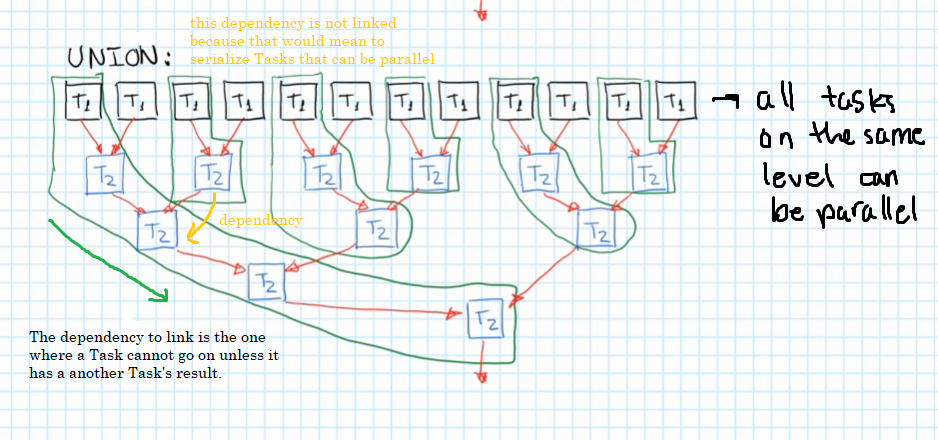 this dependency is not linked
because that would mean to
serialize Tasks that can be parallel
UNION:
T1 T1 T1 T1 T1 T1 T1 T1 T1 T1 T1 T1
→ all tasks
on the same
level can
be parallel
T2 T2 T2 T2 T2 T2
dependency
T2 T2 T2
T2
T2
The dependency to link is the one
where a Task cannot go on unless it
has a another Task's result.